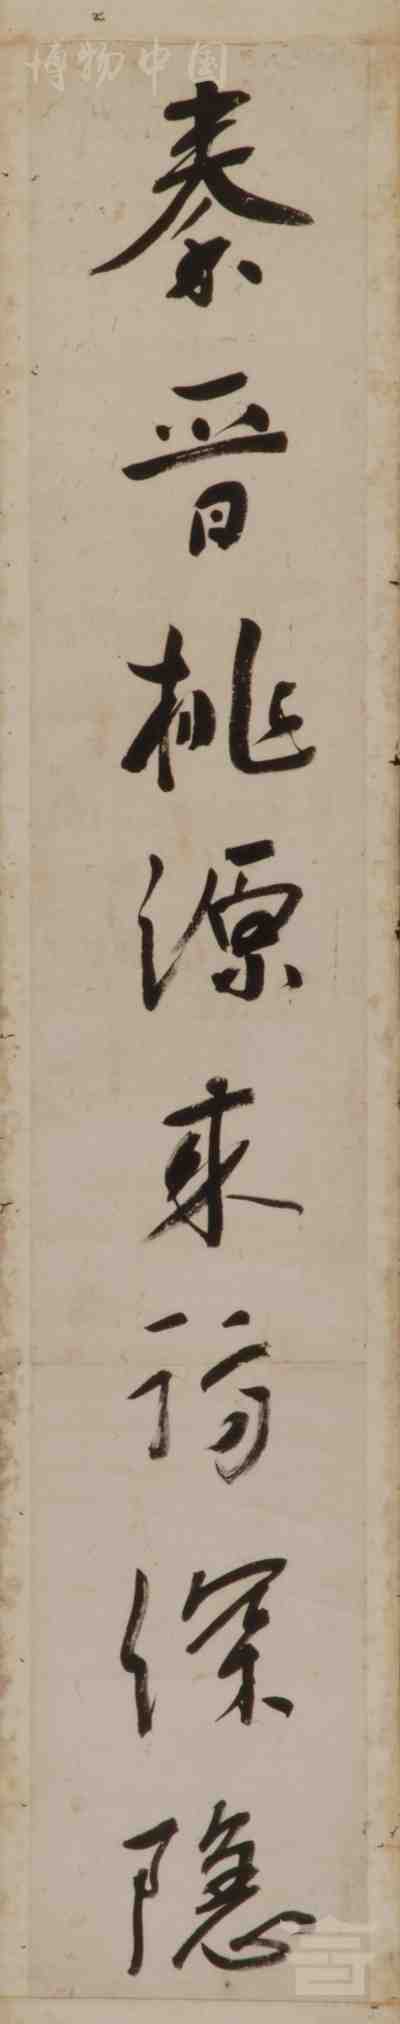 博物中国
秦晋桃源来访深隐